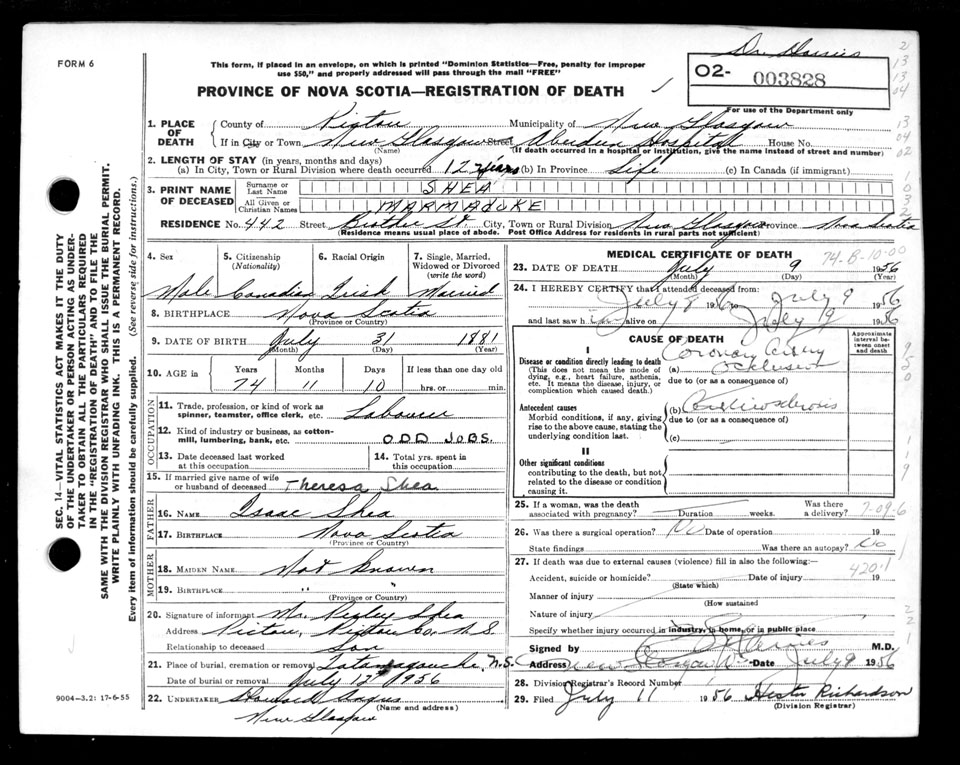 FORM 6
This form, if placed in an envelope, on which is printed "Dominion Statistics—Free, penalty for improper
use $50," and properly addressed will pass through the mail "FREE"
PROVINCE OF NOVA SCOTIA—REGISTRATION OF DEATH
02- 003828
For use of the Department only
1. PLACE OF DEATH
County of Pictou Municipality of New Glasgow
If in City or Town New Glasgow Street Aberdeen Hospital House No.
(Name) (If death occurred in a hospital or institution, give the name instead of street and number)
2. LENGTH OF STAY (in years, months and days)
(a) In City, Town or Rural Division where death occurred 12 years (b) In Province Life (c) In Canada (if immigrant)
3. PRINT NAME OF DECEASED
Surname or Last Name SHEA
All Given or Christian Names MARMADUKE
RESIDENCE No. 442 Street St. City, Town or Rural Division New Glasgow Province Nova Scotia
(Residence means usual place of abode. Post Office Address for residents in rural parts not sufficient)
4. Sex 5. Citizenship (Nationality) 6. Racial Origin 7. Single, Married, Widowed or Divorced (write the word)
Male Canadian Irish Married
8. BIRTHPLACE Nova Scotia
(Province or Country)
9. DATE OF BIRTH July 31 1881
(Month) (Day) (Year)
10. AGE in Years Months Days If less than one day old
74 11 10 hrs. or min.
OCCUPATION
11. Trade, profession, or kind of work as spinner, teamster, office clerk, etc. Labourer
12. Kind of industry or business, as cotton-mill, lumbering, bank, etc. ODD JOBS.
13. Date deceased last worked at this occupation
14. Total yrs. spent in this occupation
15. If married give name of wife or husband of deceased Theresa Shea
FATHER
16. NAME Isaac Shea
17. BIRTHPLACE Nova Scotia
(Province or Country)
MOTHER
18. MAIDEN NAME Not Known
19. BIRTHPLACE " "
(Province or Country)
20. Signature of informant Mr. Shea
Address Pictou, Pictou Co. N.S.
Relationship to deceased Son
21. Place of burial, cremation or removal Tatamagouche, N.S.
Date of burial or removal July 12th 1956
22. UNDERTAKER Angus
New Glasgow (Name and address)
MEDICAL CERTIFICATE OF DEATH
74-B-10-00
23. DATE OF DEATH July 9 1956
(Month) (Day) (Year)
24. I HEREBY CERTIFY that I attended deceased from:
July 8 1956 to July 9 1956
and last saw him alive on July 9 1956
CAUSE OF DEATH
Approximate interval between onset and death
I
Disease or condition directly leading to death
(This does not mean the mode of dying, e.g., heart failure, asthenia, etc. It means the disease, injury, or complication which caused death.)
(a) Coronary Artery Occlusion
due to (or as a consequence of)
Antecedent causes
Morbid conditions, if any, giving rise to the above cause, stating the underlying condition last.
(b)
due to (or as a consequence of)
(c)
II
Other significant conditions
contributing to the death, but not related to the disease or condition causing it.
25. If a woman, was the death associated with pregnancy? Duration weeks. Was there a delivery?
7-09-6
26. Was there a surgical operation? No Date of operation 19
State findings Was there an autopsy? No
27. If death was due to external causes (violence) fill in also the following:
420.1
Accident, suicide or homicide? Date of injury 19
(State which)
Manner of injury
(How sustained)
Nature of injury
Specify whether injury occurred in industry, in home, or in public place
Signed by M.D.
Address New Glasgow NS Date July 9 1956
28. Division Registrar's Record Number
29. Filed July 11 1956 Hester Richardson
(Division Registrar)
9004-3.2: 17-6-55
SEC. 14—VITAL STATISTICS ACT MAKES IT THE DUTY
OF THE UNDERTAKER OR PERSON ACTING AS UNDERTAKER
TO OBTAIN ALL THE PARTICULARS REQUIRED
IN THE "REGISTRATION OF DEATH" AND TO FILE THE
SAME WITH THE DIVISION REGISTRAR WHO SHALL ISSUE THE BURIAL PERMIT.
WRITE PLAINLY WITH UNFADING INK. THIS IS A PERMANENT RECORD.
Every item of information should be carefully supplied. (See reverse side for instructions.)